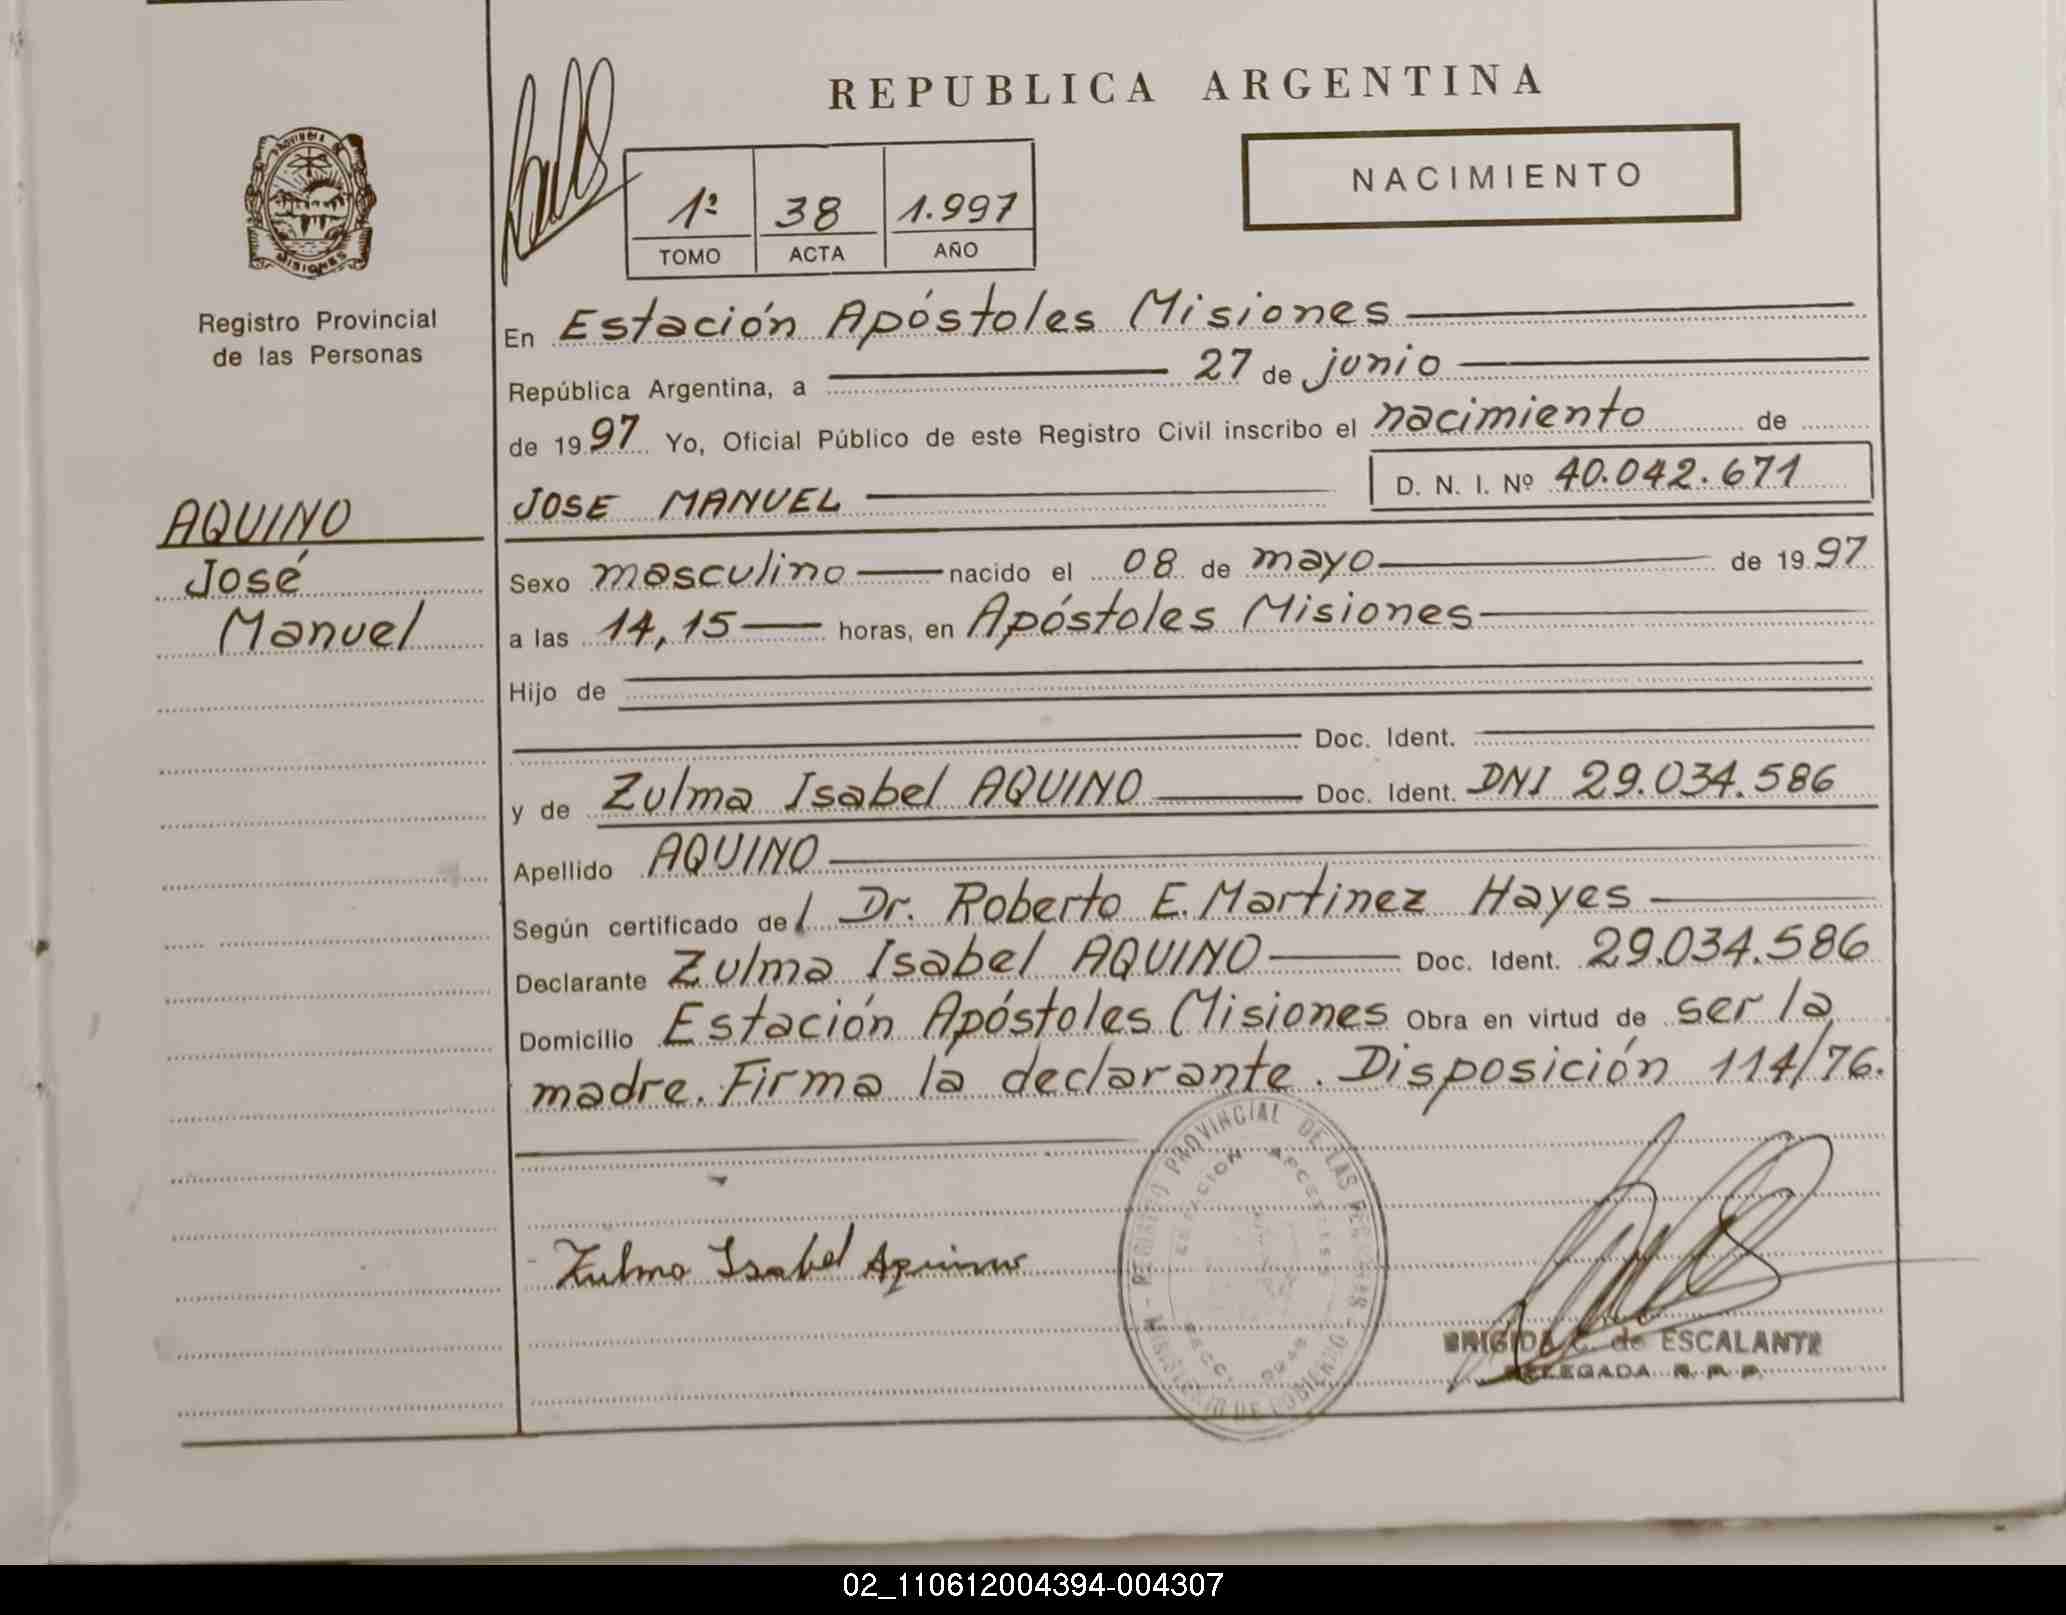 REPUBLICA ARGENTINA
PROVINCIA DE
MISIONES
Registro Provincial
de las Personas
1º 38 1.997
TOMO ACTA AÑO
NACIMIENTO
En Estación Apóstoles Misiones
República Argentina, a 27 de junio
de 1997 Yo, Oficial Público de este Registro Civil inscribo el nacimiento de
JOSE MANUEL D. N. I. Nº 40.042.671
AQUINO
José
Manuel
Sexo masculino nacido el 08 de mayo de 1997
a las 14,15 horas, en Apóstoles Misiones
Hijo de
Doc. Ident.
y de Zulma Isabel AQUINO Doc. Ident. DNI 29.034.586
Apellido AQUINO
Según certificado del Dr. Roberto E. Martinez Hayes
Declarante Zulma Isabel AQUINO Doc. Ident. 29.034.586
Domicilio Estación Apóstoles Misiones Obra en virtud de ser la
madre. Firma la declarante. Disposición 114/76.
REGISTRO PROVINCIAL DE LAS PERSONAS
MINISTERIO DE GOBIERNO
ESTACION APOSTOLES
SECC.
Zulma Isabel Aquino
BRIGIDA C. de ESCALANTE
DELEGADA R. P. P.
02_110612004394-004307